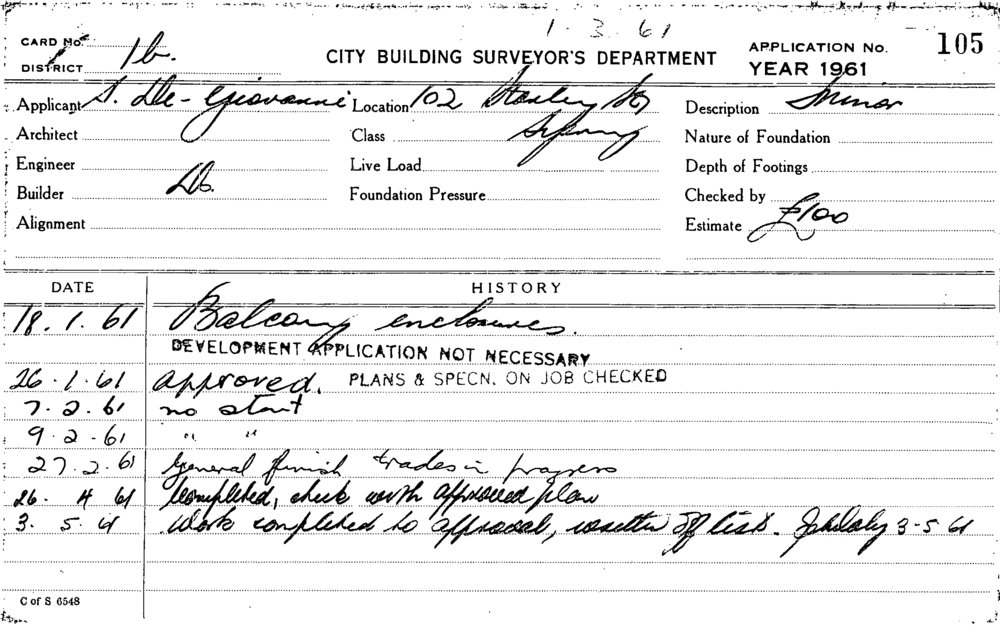 1.3.61
CARD No. 1b.
DISTRICT
CITY BUILDING SURVEYOR'S DEPARTMENT
APPLICATION No. 105
YEAR 1961
Applicant S. De-Giovanni Location 102 Stanley St Description Minor
Architect Class Nature of Foundation
Engineer Live Load Depth of Footings
Builder Do. Foundation Pressure Checked by
Alignment Estimate £100
DATE HISTORY
18.1.61 Balcony enclosures.
DEVELOPMENT APPLICATION NOT NECESSARY
26.1.61 approved. PLANS & SPECN. ON JOB CHECKED
7.2.61 no start
9.2.61 " "
27.2.61 General finish trades in progress
26. 4 61 Completed, check with approved plan
3. 5. 61 Work completed to approval, written off list. 3-5 61
C of S 6548